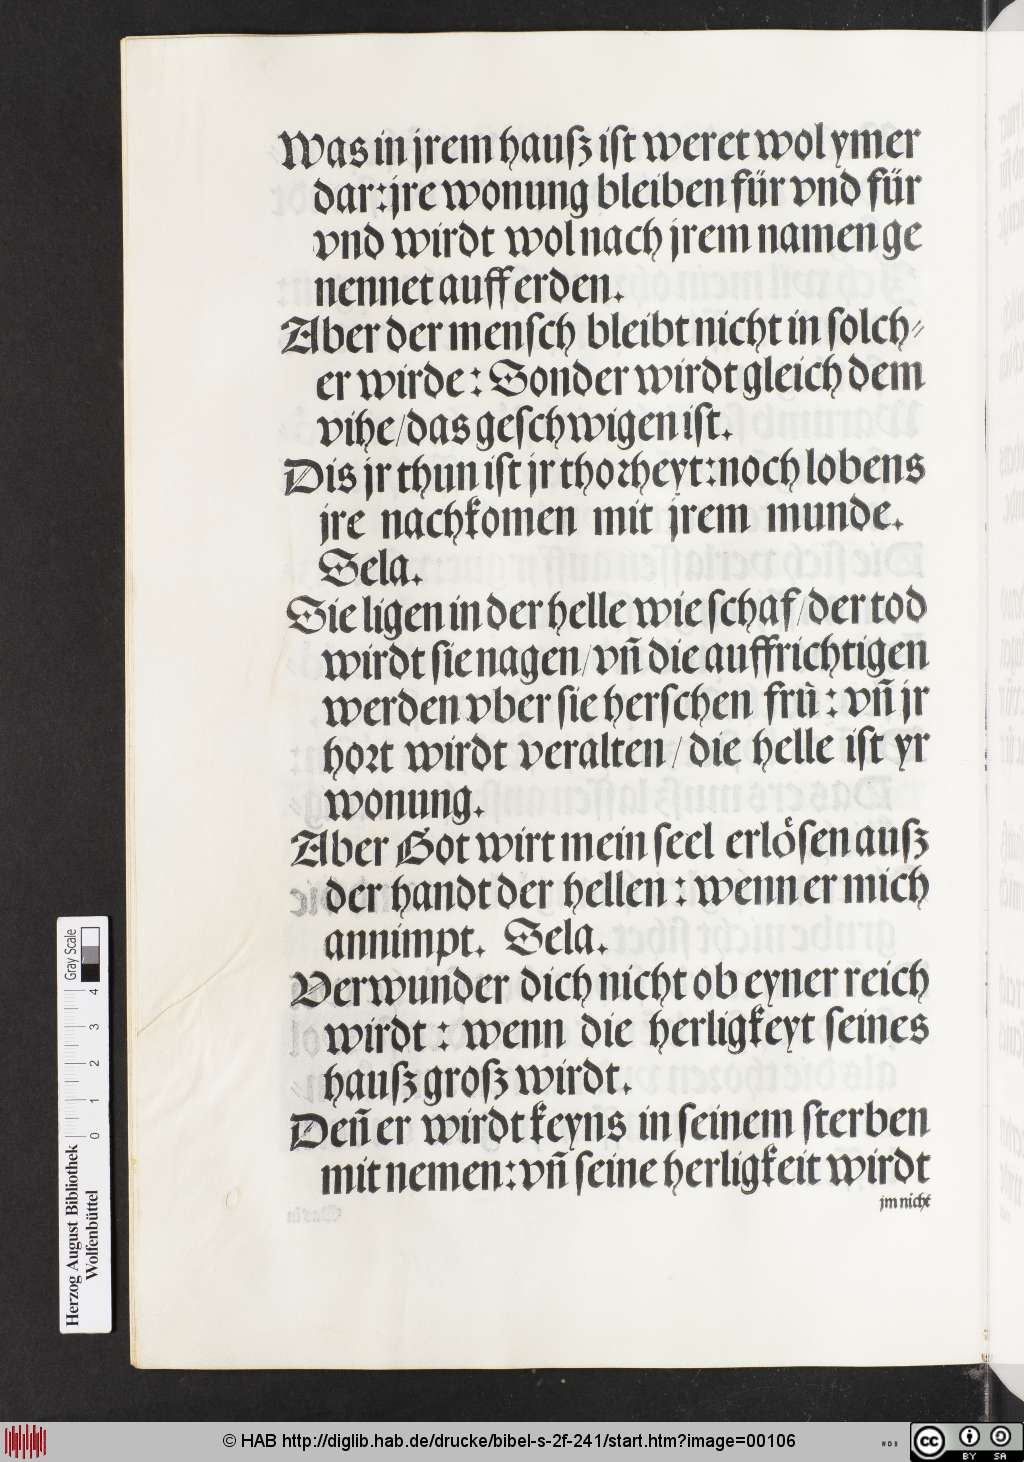 Was in jrem hauſz iſt weret wol ymer
dar : jre wonung bleiben für vnd für
vnd wirdt wol nach jrem namen ge
nennet auff erden.
Aber der menſch bleibt nicht in ſolch⸗
er wirde : Sonder wirdt gleich dem
vihe / das geſchwigen iſt.
Dis jr thun iſt jr thorheyt : noch lobens
jre nachkomen mit jrem munde.
Sela.
Sie ligen in der helle wie ſchaf / der tod
wirdt ſie nagen / vñ die auffrichtigen
werden vber ſie herſchen frü : vñ jr
hort wirdt veralten / die helle iſt yr
wonung.
Aber Got wirt mein ſeel erlöſen auſz
der handt der hellen : wenn er mich
annimpt. Sela.
Verwunder dich nicht ob eyner reich
wirdt : wenn die herligkeyt ſeines
hauſz groſz wirdt.
Deñ er wirdt keyns in ſeinem ſterben
mit nemen : vñ ſeine herligkeit wirdt
jm nicht
Herzog August Bibliothek
Wolfenbüttel
0 1 2 3 4
Gray Scale
© HAB http://diglib.hab.de/drucke/bibel-s-2f-241/start.htm?image=00106
WDB
cc BY SA